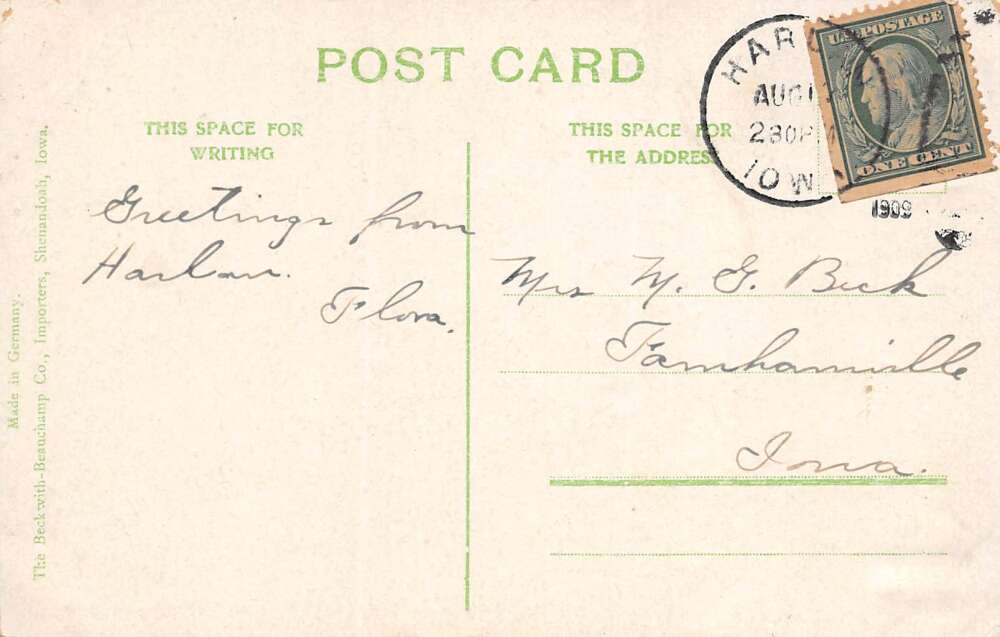 POST CARD
THIS SPACE FOR
WRITING
Greetings from
Harlan.
Flora.
THIS SPACE FOR
THE ADDRESS
Mrs M. G. Beck
Farnhamville
Iowa.
AUG
230PM
IOWA
1909
U.S. POSTAGE
ONE CENT
Made in Germany.
The Beckwith-Beauchamp Co., Importers, Shenandoah, Iowa.